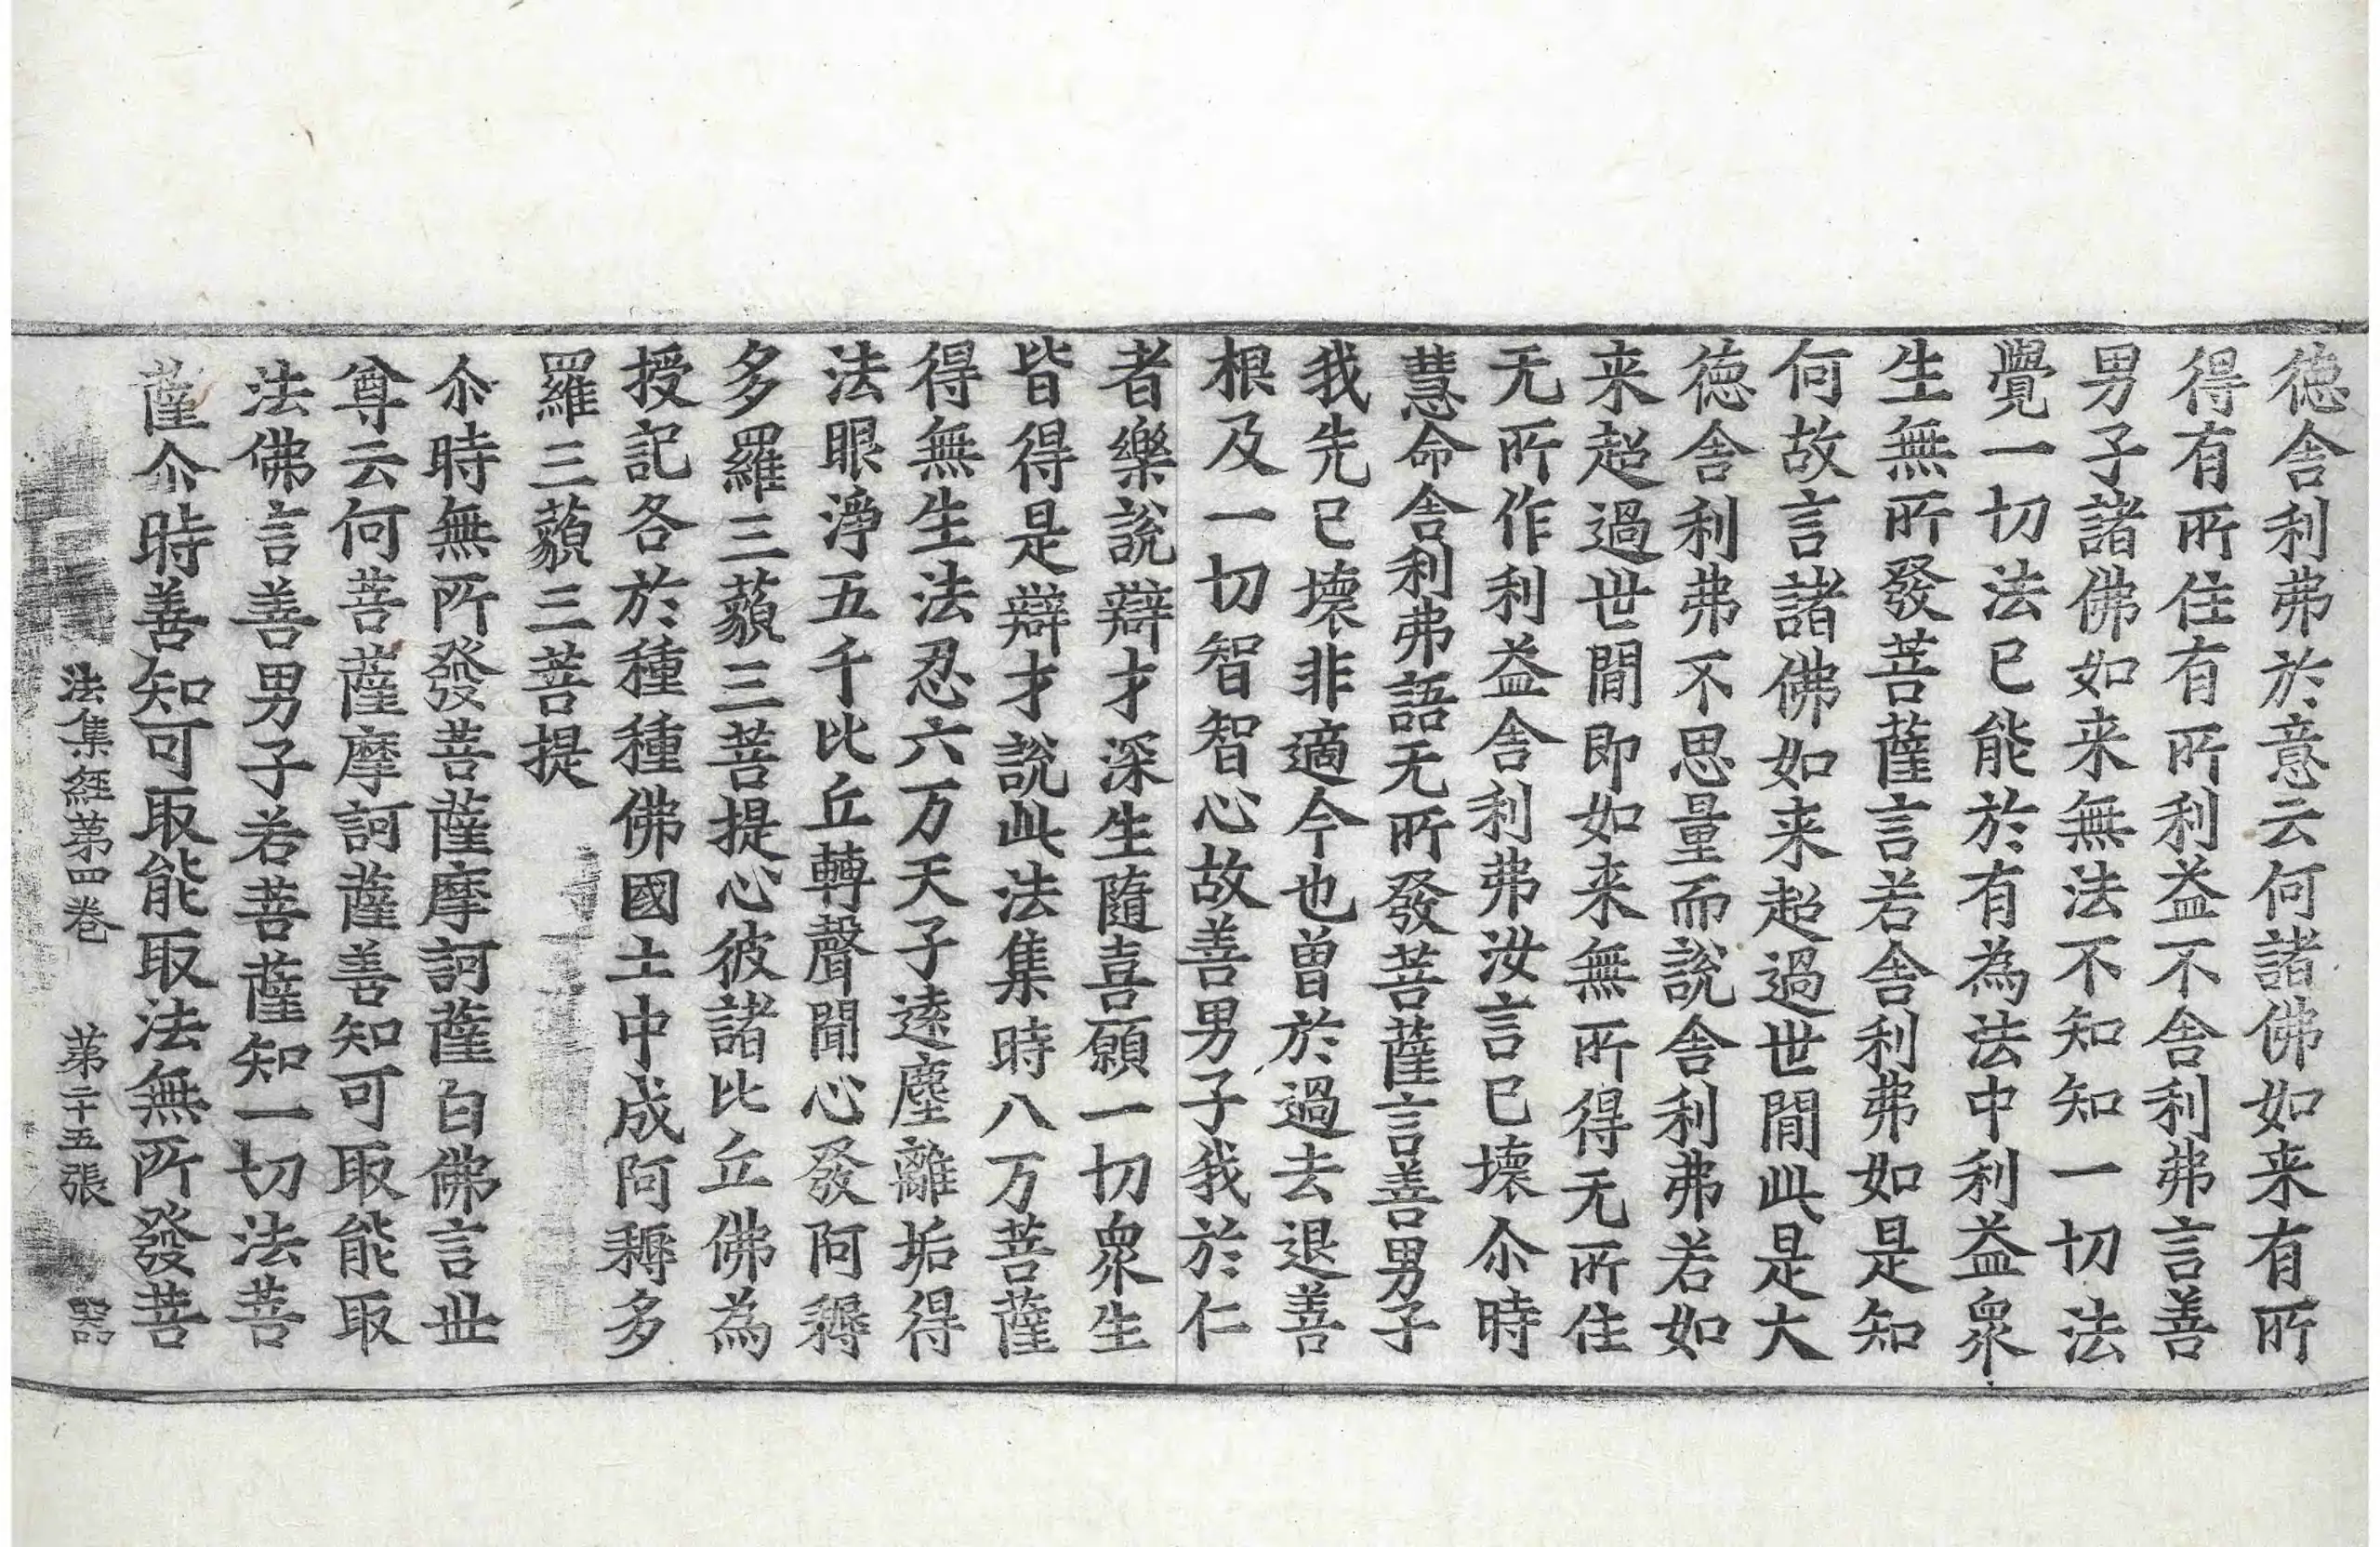 徳舎利弗於意云何諸佛如来有所
得有所住有所利益不舎利弗言善
男子諸佛如来無法不知知一切法
覺一切法已能於有為法中利益衆
生無所發菩薩言若舎利弗如是知
何故言諸佛如来超過世間此是大
徳舎利弗不思量而說舎利弗若如
来超過世間即如来無所得无所住
无所作利益舎利弗汝言已壞尒時
慧命舎利弗語无所發菩薩言善男子
我先已壞非適今也曽於過去退善
根及一切智智心故善男子我於仁
者樂說辯才深生隨喜願一切衆生
皆得是辯才說此法集時八万菩薩
得無生法忍六万天子逺塵離垢得
法眼淨五千比丘轉聲聞心發阿耨
多羅三藐三菩提心彼諸比丘佛為
授記各於種種佛國土中成阿耨多
羅三藐三菩提
尒時無所發菩薩摩訶薩白佛言世
尊云何菩薩摩訶薩善知可取能取
法佛言善男子若菩薩知一切法菩
薩尒時善知可取能取法無所發菩
法集經苐四巻 苐二十五張 器